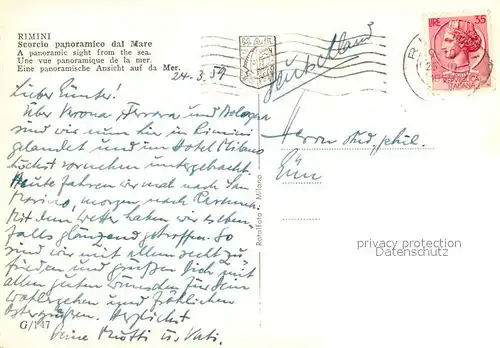 RIMINI
Scorcio panoramico dal Mare
A panoramic sight from the sea.
Une vue panoramique de la mer.
Eine panoramische Ansicht auf da Mer.
24-3.59
Lieber Günter!
Über Verona Ferrara und Bologna
sind wir nun hier in Rimini
gelandet und im Hotel
höchst vornehm untergebracht.
Heute fahren wir mal nach San
Marino, morgen nach Ravenna.
Mit dem Wetter haben wir es eben-
falls glänzend getroffen. So
sind wir mit allem sehr zu-
frieden und grüßen Dich mit
allen guten Wünschen für Dein
Wohlergehen und fröhlichen
Ostergrüßen. Herzlichst
Deine Mutti u. Vati.
G/147
Rotalfoto - Milano
Deutschland
Herrn stud. phil.
LIRE 35
ITALIANA
privacy protection
Datenschutz